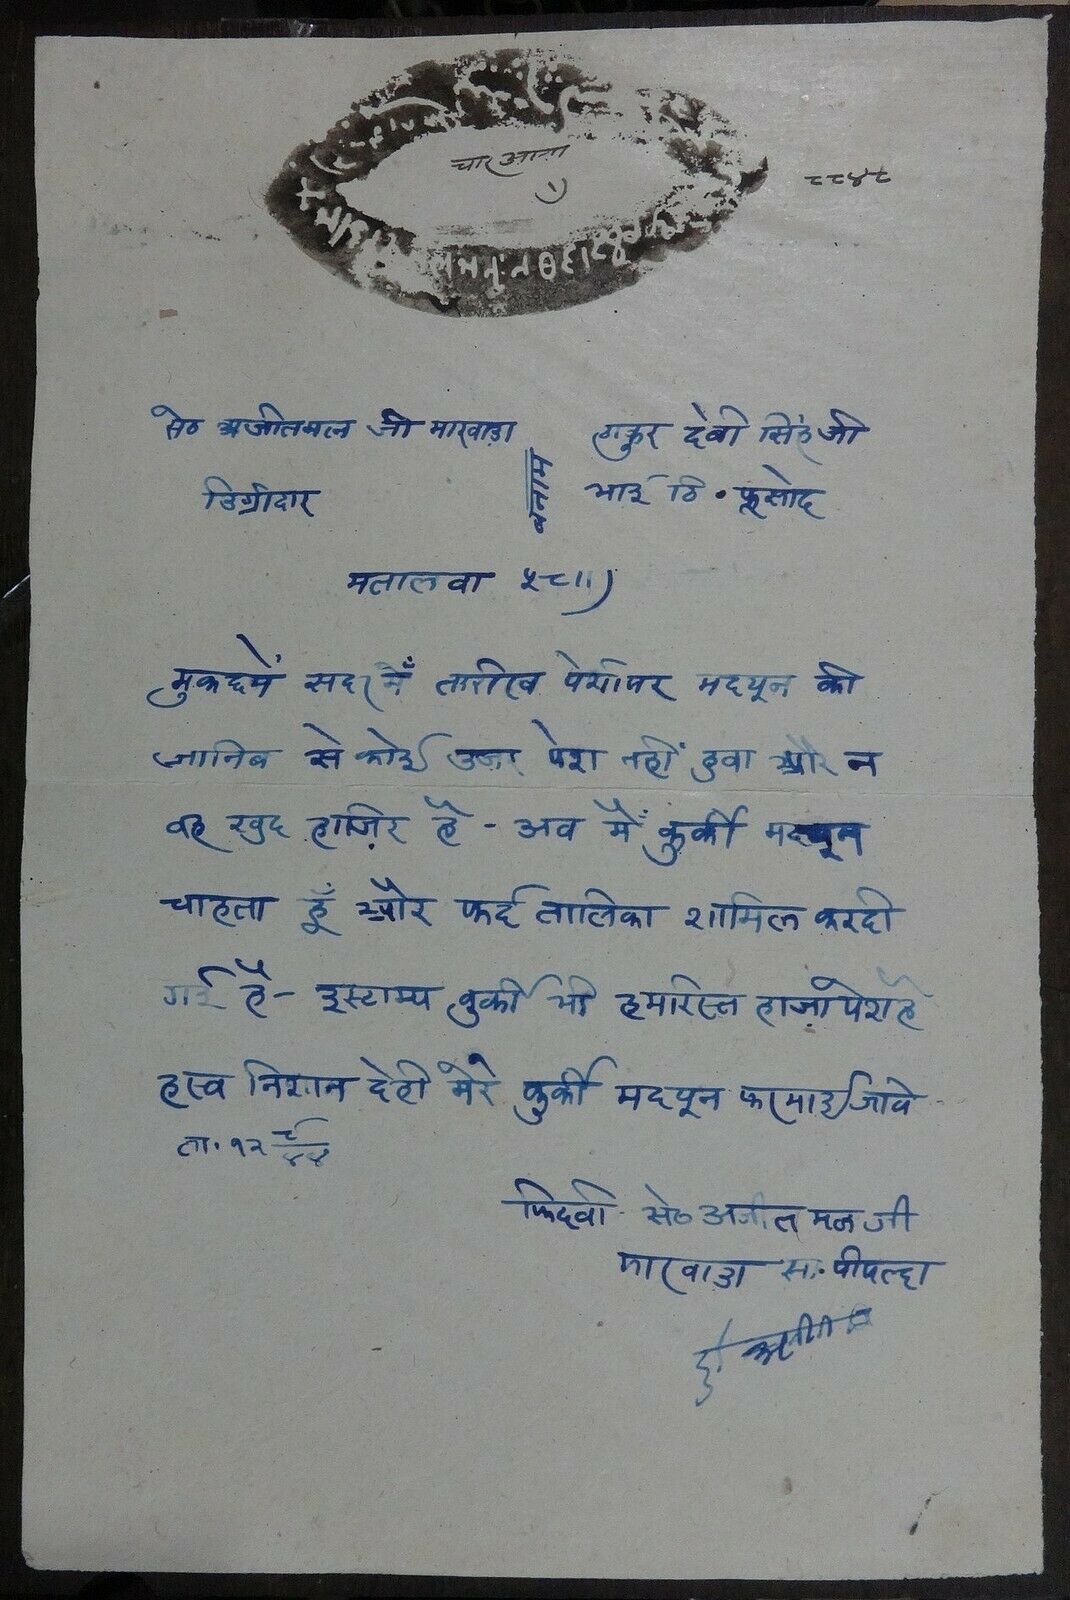 चार आना
८८४८
सेठ अजीतमल जी मारवाड़ा
बनाम
ठाकुर देवी सिंह जी
डिग्रीदार
भाई ठि. फूसोद
मतालवा ५८॥)
मुकदमें सदर में तारीख पेशीपर मदयून की
जानिब से कोई उजर पेश नहीं हुवा और न
वह खुद हाज़िर है - अब मैं कुर्की मदयून
चाहता हूँ और फर्द तालिका शामिल करदी
गई है - इस्टाम्प कुर्की भी हमरिस्त हाज़ा पेश है
हस्व निशान देही मेरे कुर्की मदयून फरमाई जावे
ता. १२ ९/४४
फिदवी सेठ अजीतमल जी
मारवाड़ा सा. पीपल्दा